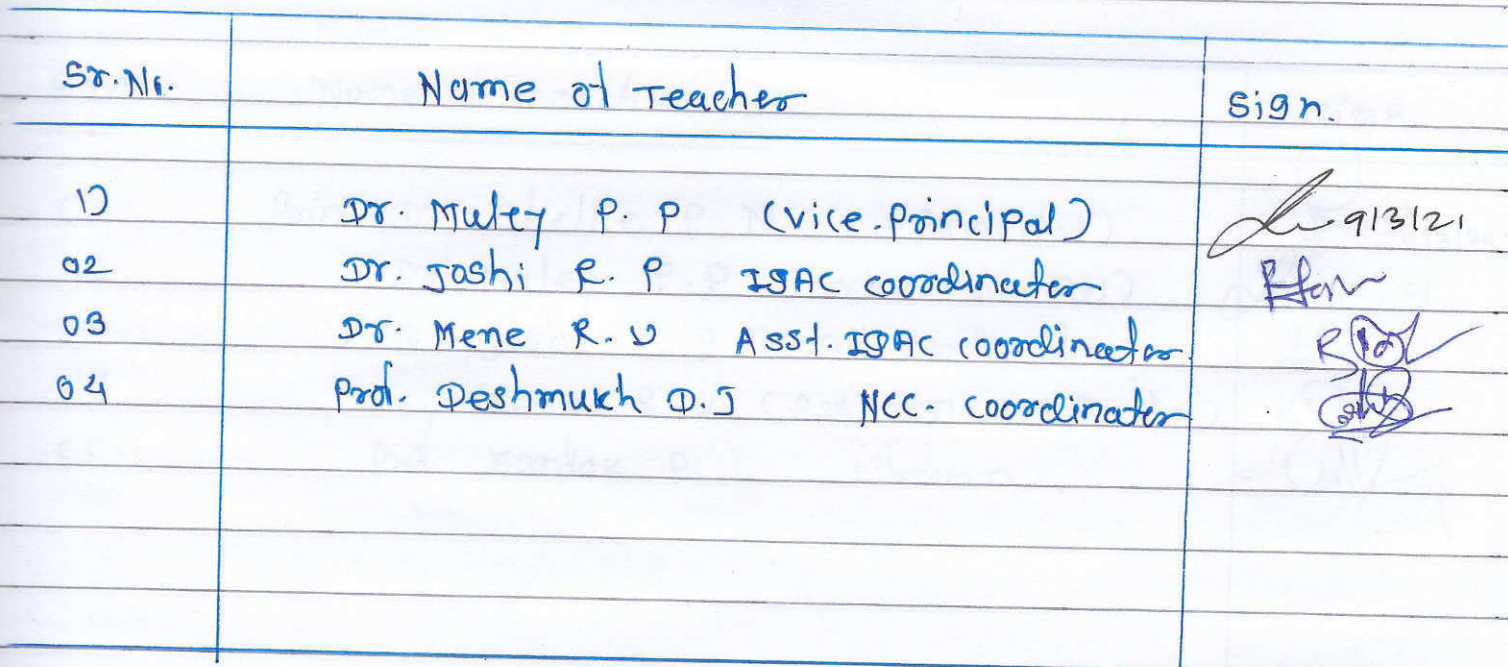 Sr. No. Name of Teacher Sign.
1) Dr. Muley P. P (Vice. Principal) 9/3/21
02 Dr. Joshi R. P IQAC coordinator
03 Dr. Mene R. V Asst. IQAC coordinator
04 Prof. Deshmukh D. J NCC. coordinator